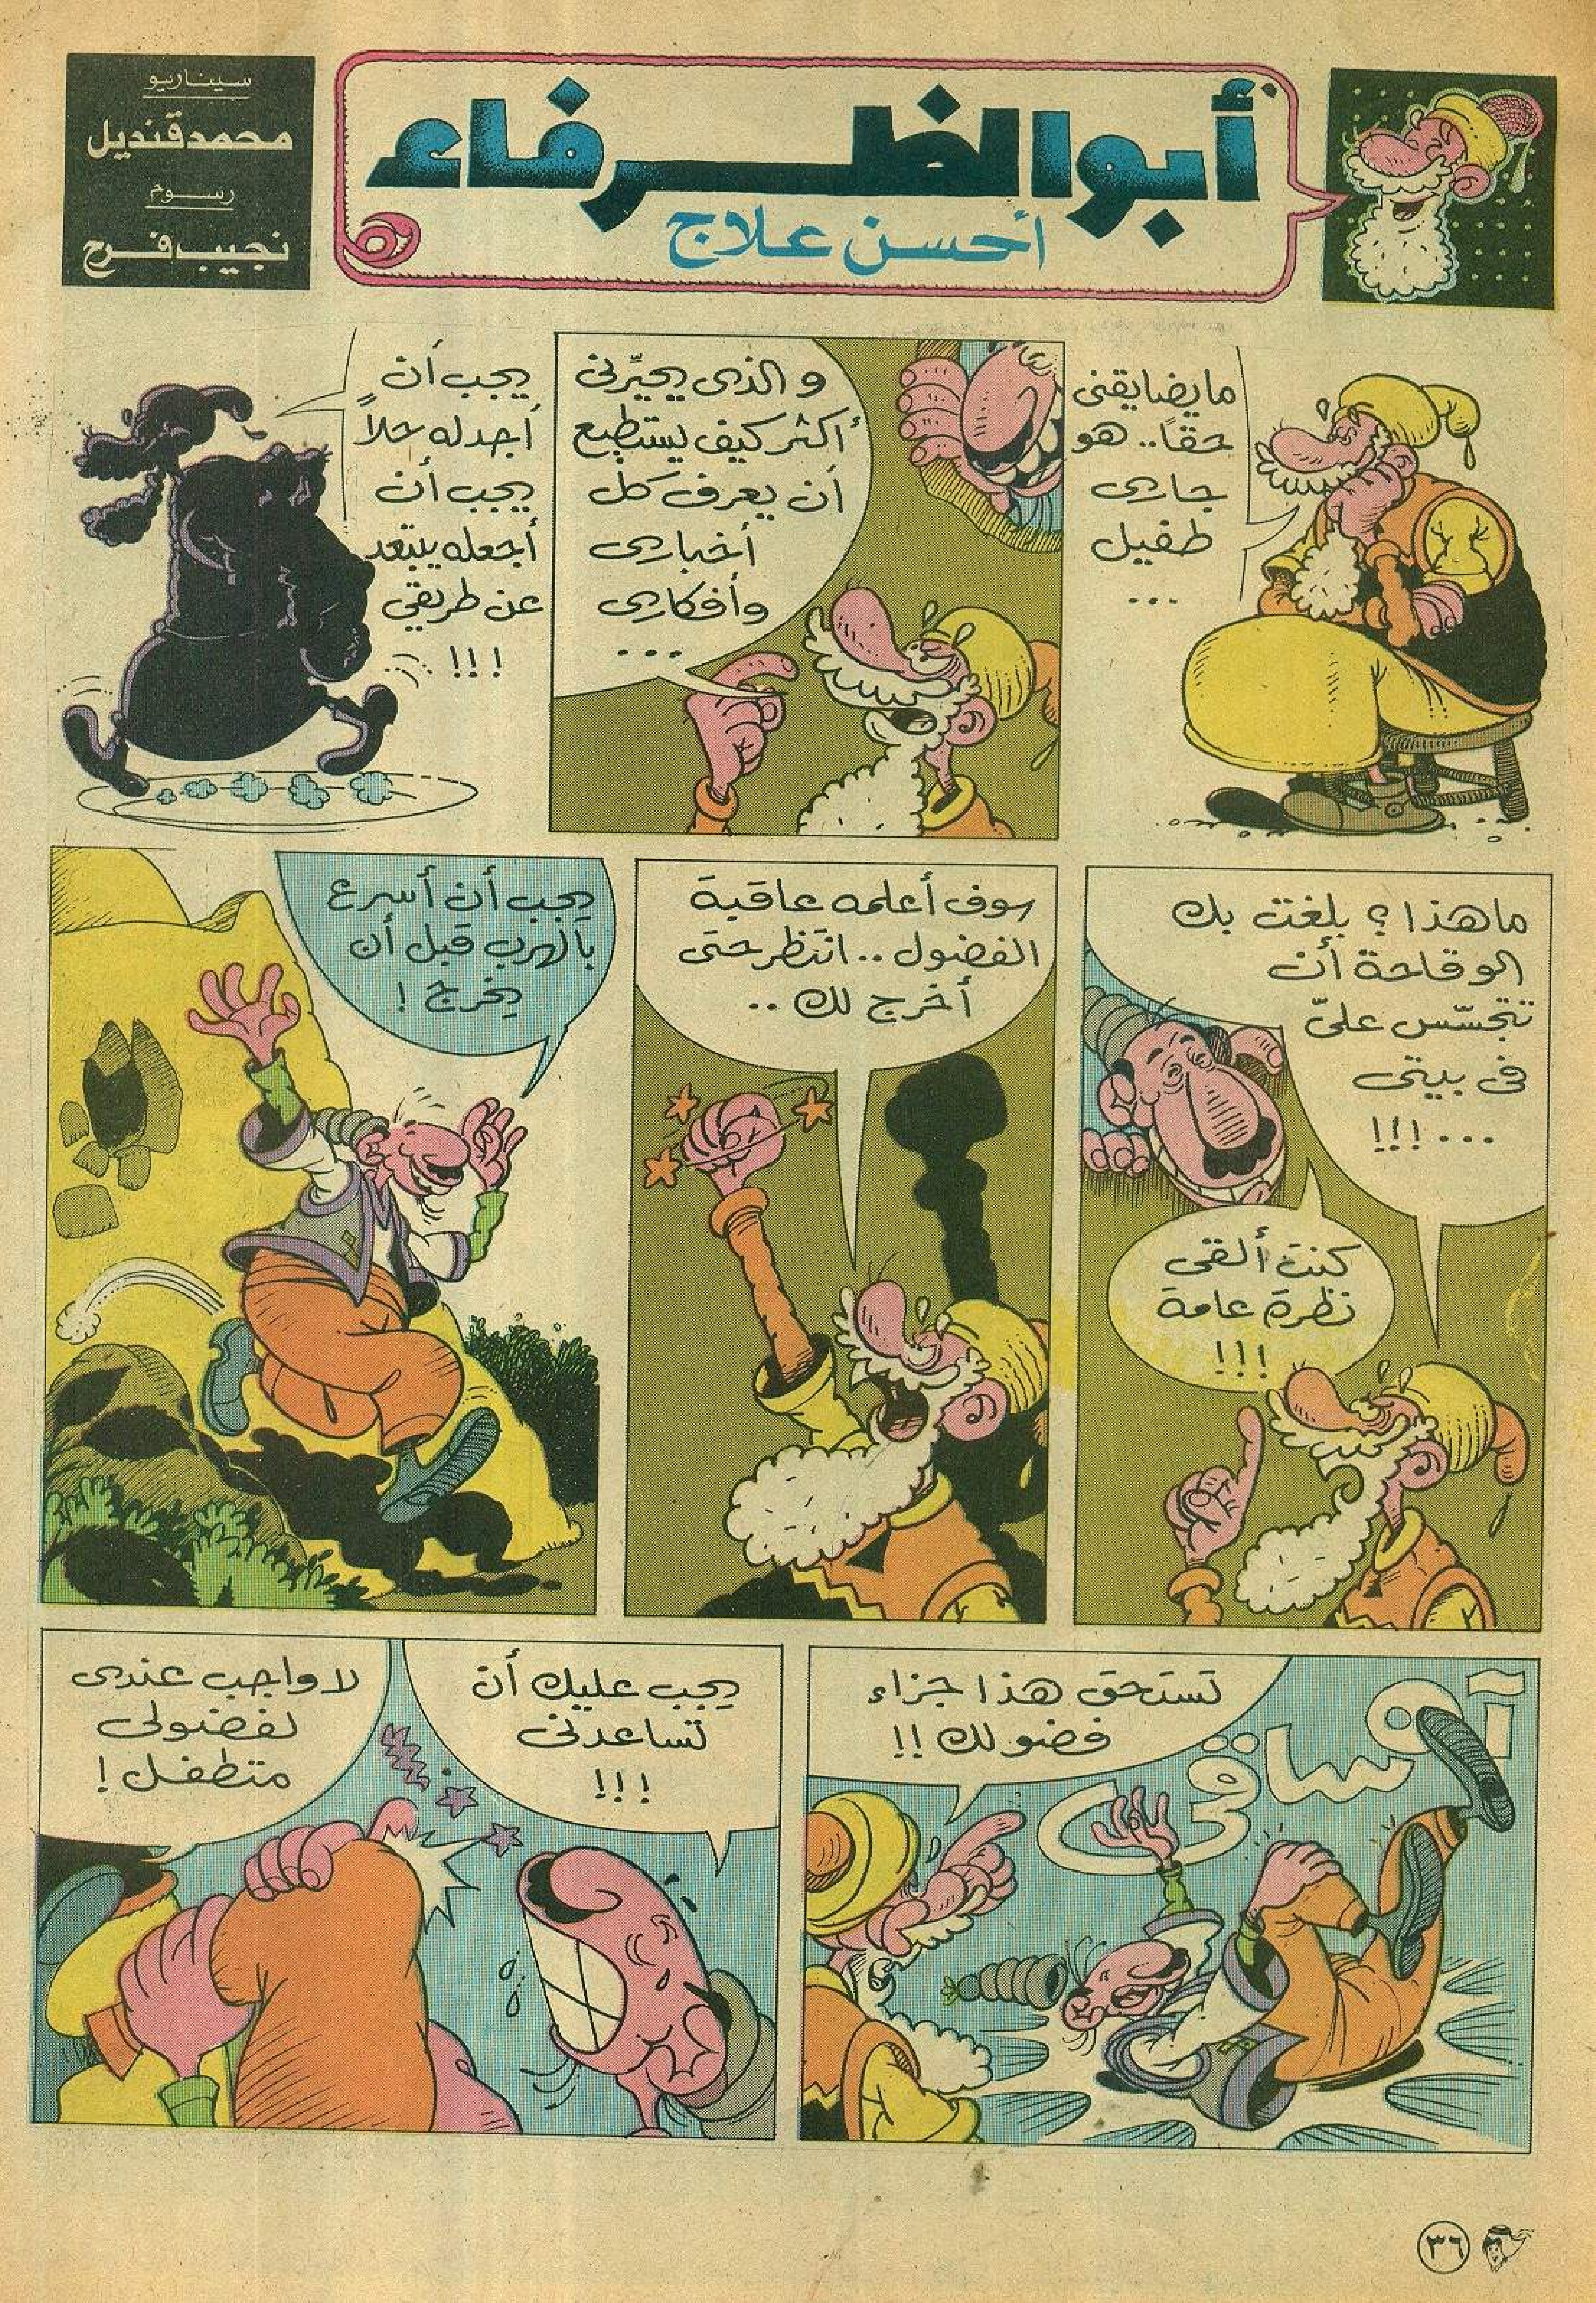 أبوالظرفاء
أحسن علاج
سيناريو
محمد قنديل
رسوم
نجيب فرح
ما يضايقنى
حقاً.. هو
جارى
طفيل
...
و الذى يحيِّرنى
أكثر كيف يستطيع
أن يعرف كل
أخبارى
وأفكارى
...
يجب أن
أجد له حلاً
يجب أن
أجعله يبتعد
عن طريقي
!!!
ما هذا؟ بلغت بك
الوقاحة أن
تتجسّس علىّ
فى بيتى
...!!!
كنت ألقى
نظرة عامة
!!!
سوف أعلمه عاقبة
الفضول.. انتظر حتى
أخرج لك ..
يجب أن أسرع
بالهرب قبل أن
يخرج !
تستحق هذا جزاء
فضولك !!
آه ساقى
يجب عليك أن
تساعدنى
!!!
لا واجب عندى
لفضولى
متطفل !
٣٦